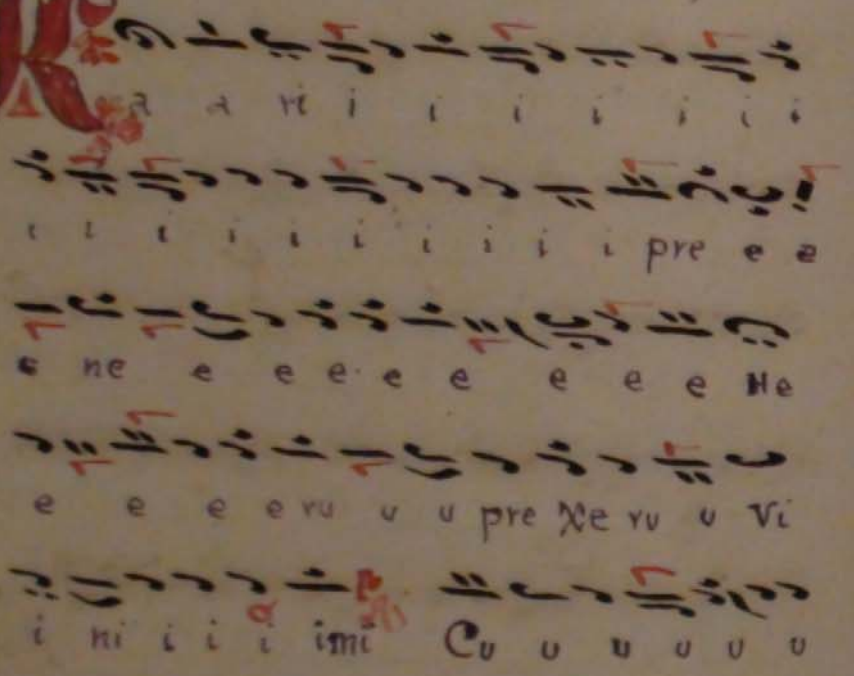 a a ri i i i i i i i
i i i i i i i i i i pre e e
e ne e e e e e e e e He
e e e e ru u u pre Xe ru u Vi
i ni i i i imi Cu u u u u u